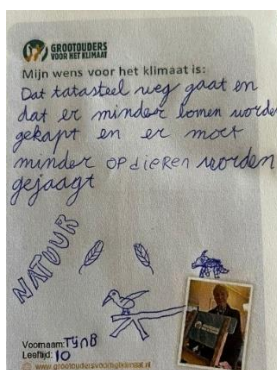 GROOTOUDERS
VOOR HET KLIMAAT
Mijn wens voor het klimaat is:
Dat tatasteel weg gaat en
dat er minder bomen worde
gekapt en er moet
minder op dieren worden
gejaagt
NATUUR
Voornaam: TYNB
Leeftijd: 10
www.grootoudersvoorhetklimaat.nl